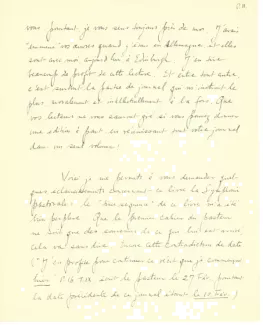 vous pourtant je vous sens toujours près de moi. J'avais
"emmené" vos œuvres quand j'étais en Allemagne et elles
sont avec moi aujourd'hui à Edinburgh. J'en tire
beaucoup de profit de cette lecture. Et entre tout autre
c'est surtout la partie de journal qui me nourrit le
plus moralement et intellectuellement à la fois. Que
vos lecteurs ne vous sauront gré si vous pouvez donner
une édition à part en réunissant tout votre journal
dans un seul volume !
Voici je me permets à vous demander quel-
ques éclaircissements concernant ce livre la Symphonie
pastorale : le de ce livre m'a
bien perplexe. Que le premier cahier du pasteur
ne soit que des souvenirs de ce qui lui est arrivé,
cela va sans dire. Suivre cette contradiction de date
on profite pour continuer ce récit que je commençai
hier. écrit le pasteur le 27 Fév. pourtant
la date précédente de ce journal étant le 10 Fév. )